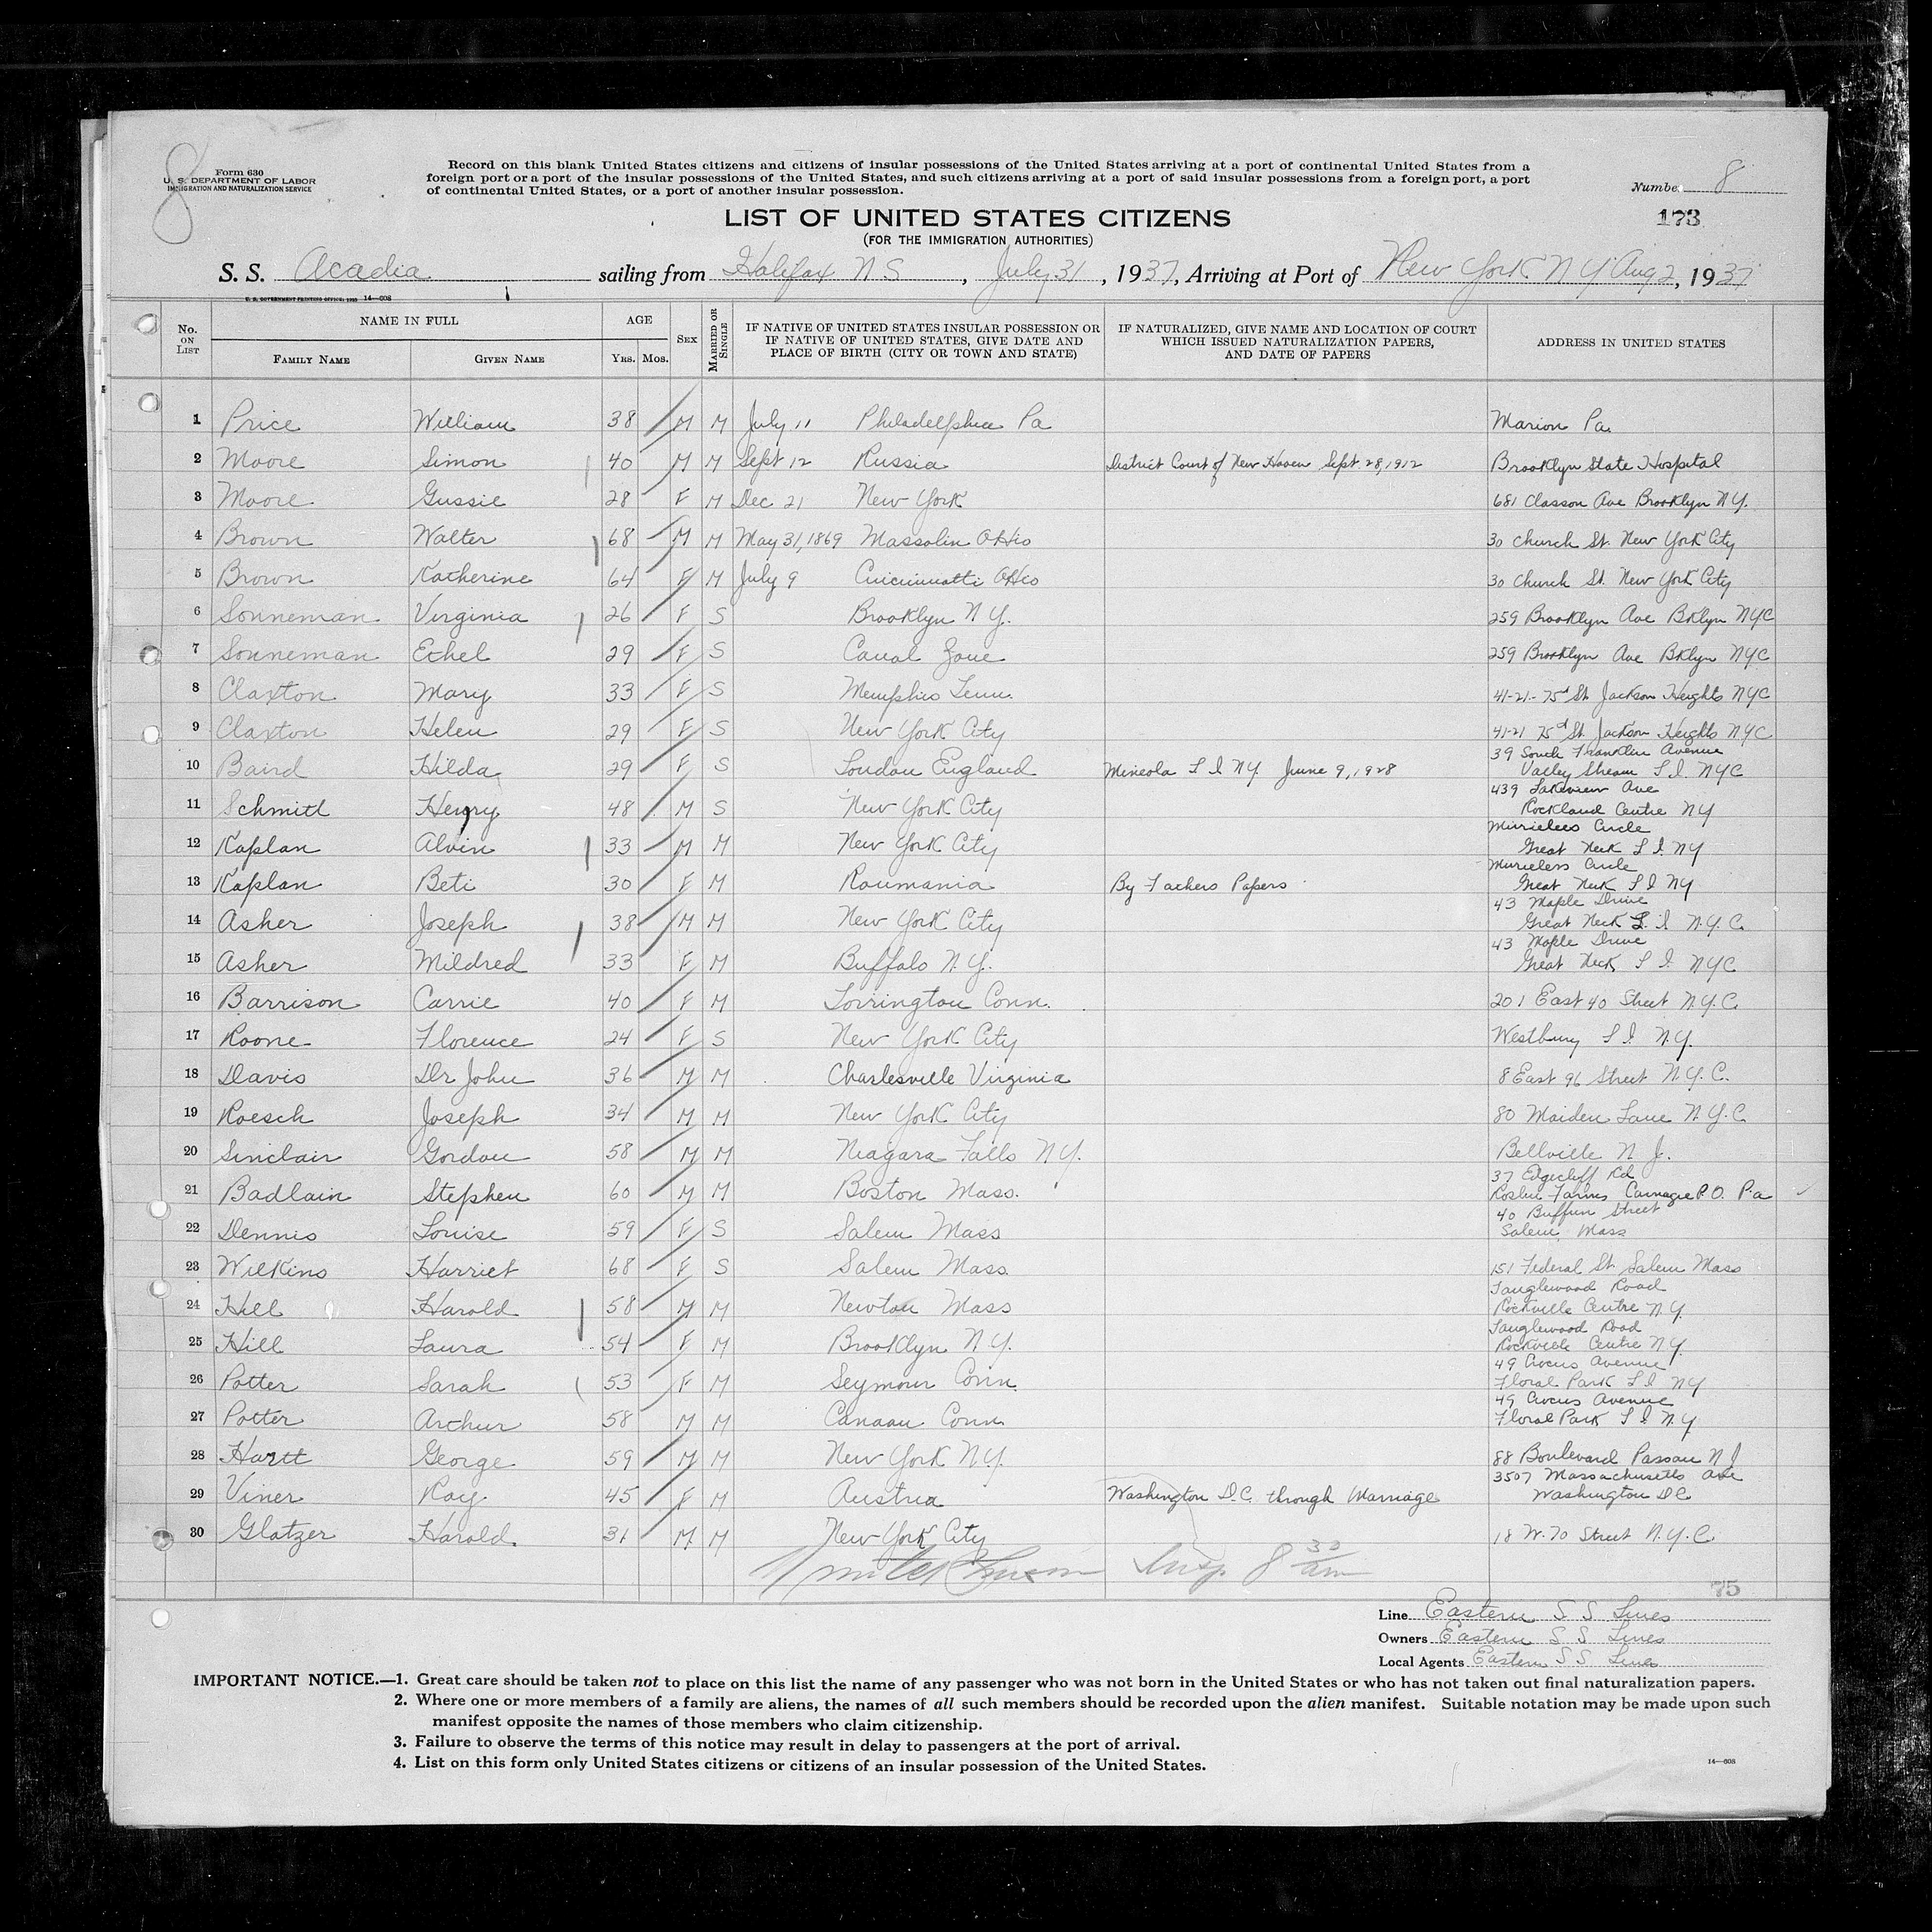 8
Form 630
U. S. DEPARTMENT OF LABOR
IMMIGRATION AND NATURALIZATION SERVICE
Record on this blank United States citizens and citizens of insular possessions of the United States arriving at a port of continental United States from a
foreign port or a port of the insular possessions of the United States, and such citizens arriving at a port of said insular possessions from a foreign port, a port
of continental United States, or a port of another insular possession.
Number 8
173
LIST OF UNITED STATES CITIZENS
(FOR THE IMMIGRATION AUTHORITIES)
S. S. Acadia sailing from Halifax N S, July 31, 1937, Arriving at Port of New York N Y Aug 2, 1937
U. S. GOVERNMENT PRINTING OFFICE: 1935 14—608
No. ON LIST NAME IN FULL FAMILY NAME GIVEN NAME AGE YRS. MOS. SEX MARRIED OR SINGLE IF NATIVE OF UNITED STATES INSULAR POSSESSION OR IF NATIVE OF UNITED STATES, GIVE DATE AND PLACE OF BIRTH (CITY OR TOWN AND STATE) IF NATURALIZED, GIVE NAME AND LOCATION OF COURT WHICH ISSUED NATURALIZATION PAPERS, AND DATE OF PAPERS ADDRESS IN UNITED STATES
1 Price William 38 M M July 11 Philadelphia Pa Marion Pa
2 Moore Simon 40 M M Sept 12 Russia District Court of New Haven Sept. 28, 1912 Brooklyn State Hospital
3 Moore Gussie 28 F M Dec 21 New York 681 Classon Ave Brooklyn N Y.
4 Brown Walter 68 M M May 31, 1869 Massolin Ohio 30 Church St. New York City
5 Brown Katherine 64 F M July 9 Cincinnatti Ohio 30 Church St. New York City
6 Sonneman Virginia 26 F S Brooklyn N Y. 259 Brooklyn Ave Bklyn NYC
7 Sonneman Ethel 29 F S Canal Zone 259 Brooklyn Ave Bklyn NYC
8 Claxton Mary 33 F S Memphis Tenn. 41-21- 75d St. Jackson Heights NYC
9 Claxton Helen 29 F S New York City 41-21 75d St. Jackson Heights NYC
10 Baird Hilda 29 F S London England Mineola L I NY June 9, 1928 39 South Franklin Avenue
Valley Stream L I. NYC
11 Schmitt Henry 48 M S New York City 439 Lakeview Ave
Rockland Centre NY
12 Kaplan Alvin 33 M M New York City Circle
Great Neck L I. NY
13 Kaplan Beti 30 F M Roumania By Fathers Papers Circle
Great Neck L I NY
14 Asher Joseph 38 M M New York City 43 Maple Drive
Great Neck L. I N.Y.C.
15 Asher Mildred 33 F M Buffalo N.Y. 43 Maple Drive
Great Neck L I. NYC
16 Barrison Carrie 40 F M Torrington Conn. 201 East 40 Street N.Y.C.
17 Roone Florence 24 F S New York City Westbury L I. N.Y.
18 Davis Dr John 36 M M Charlesville Virginia 8 East 96 Street N.Y.C.
19 Roesch Joseph 34 M M New York City 80 Maiden Lane N.Y.C
20 Sinclair Gordon 58 M M Niagara Falls N Y. Bellville N J.
21 Badlain Stephen 60 M M Boston Mass. 37 Edgecliff Rd
Roslin Farms Carnagie P.O. Pa
22 Dennis Louise 59 F S Salem Mass 40 Buffum Street
Salem Mass
23 Wilkins Harriet 68 F S Salem Mass. 151 Federal St. Salem Mass
24 Hill Harold 58 M M Newton Mass Tanglewood Road
Rockville Centre N.Y.
25 Hill Laura 54 F M Brooklyn N.Y. Tanglewood Road
Rockville Centre N Y.
26 Potter Sarah 53 F M Seymour Conn. 49 Crocus Avenue
Floral Park L I NY
27 Potter Arthur 58 M M Canaan Conn. 49 Crocus Avenue
Floral Park L I N.Y
28 Hartt George 59 M M New York N.Y. 88 Boulevard N J
29 Viner Ray 45 F M Austria Washington D.C. through Marriage 3507 Massachusetts Ave
Washington DC
30 Glatzer Harold. 31 M M New York City 18 W. 70 Street N.Y.C.
Insp. 8 30 am
75
Line Eastern S S Lines
Owners Eastern S S Lines
Local Agents Eastern S S Lines
IMPORTANT NOTICE.—1. Great care should be taken not to place on this list the name of any passenger who was not born in the United States or who has not taken out final naturalization papers.
2. Where one or more members of a family are aliens, the names of all such members should be recorded upon the alien manifest. Suitable notation may be made upon such
manifest opposite the names of those members who claim citizenship.
3. Failure to observe the terms of this notice may result in delay to passengers at the port of arrival.
4. List on this form only United States citizens or citizens of an insular possession of the United States.
14—608